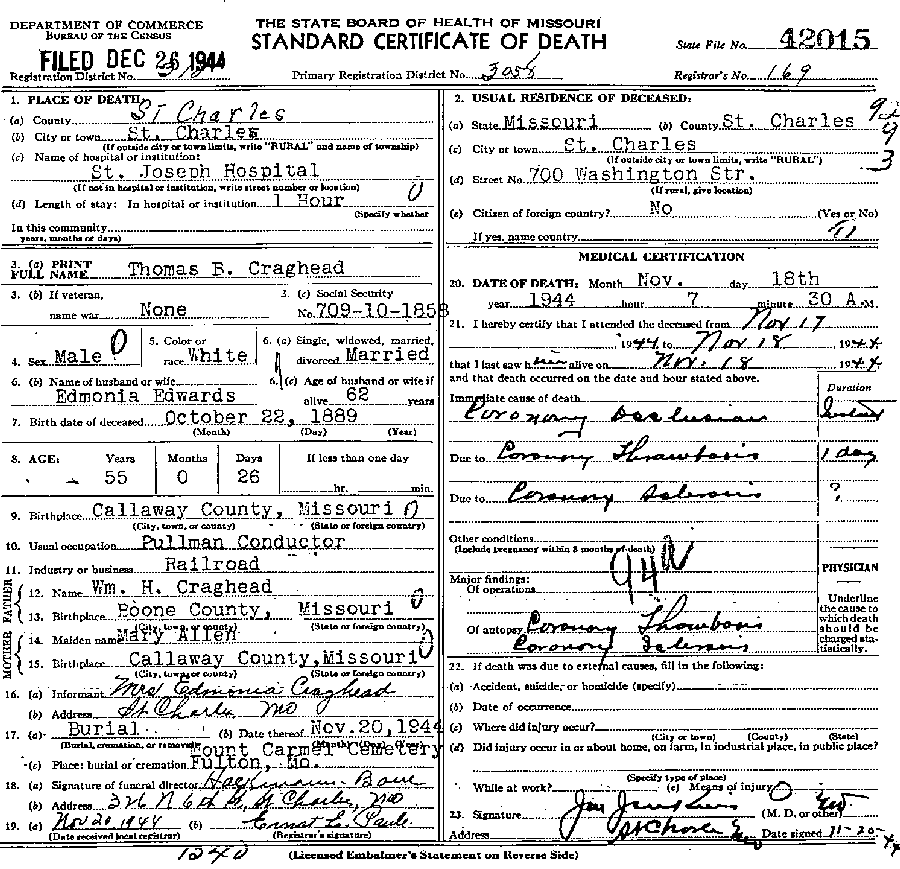 DEPARTMENT OF COMMERCE
BUREAU OF THE CENSUS
THE STATE BOARD OF HEALTH OF MISSOURI
STANDARD CERTIFICATE OF DEATH
State File No. 42015
FILED DEC 26 1944
Registration District No.
Primary Registration District No. 3058
Registrar's No. 169
1. PLACE OF DEATH:
(a) County St Charles
(b) City or town St. Charles
(If outside city or town limits, write "RURAL" and name of township)
(c) Name of hospital or institution:
St. Joseph Hospital
(If not in hospital or institution, write street number or location)
(d) Length of stay: In hospital or institution 1 Hour
(Specify whether
In this community
years, months or days)
3. (a) PRINT FULL NAME Thomas B. Craghead
3. (b) If veteran, name war None
3. (c) Social Security No. 709-10-1858
4. Sex Male
5. Color or race White
6. (a) Single, widowed, married, divorced Married
6. (b) Name of husband or wife
Edmonia Edwards
6. (c) Age of husband or wife if alive 62 years
7. Birth date of deceased October 22, 1889
(Month) (Day) (Year)
8. AGE: Years Months Days If less than one day
55 0 26 hr. min.
9. Birthplace Callaway County, Missouri
(City, town, or county) (State or foreign country)
10. Usual occupation Pullman Conductor
11. Industry or business Railroad
FATHER
12. Name Wm. H. Craghead
13. Birthplace Boone County, Missouri
(City, town, or county) (State or foreign country)
MOTHER
14. Maiden name Mary Allen
15. Birthplace Callaway County, Missouri
(City, town, or county) (State or foreign country)
16. (a) Informant Mrs Edmonia Craghead
(b) Address St Charles Mo
17. (a) Burial (b) Date thereof Nov. 20, 1944
(Burial, cremation, or removal)
Mount Carmel Cemetery
(c) Place: burial or cremation Fulton, Mo.
18. (a) Signature of funeral director Hackmann-Baue
(b) Address 326 N 6th St, St Charles, Mo
19. (a) Nov 20, 1944 (b) Ernst L. Paule
(Date received local registrar) (Registrar's signature)
1240
2. USUAL RESIDENCE OF DECEASED:
(a) State Missouri (b) County St. Charles
(c) City or town St. Charles
(If outside city or town limits, write "RURAL")
(d) Street No. 700 Washington Str.
(If rural, give location)
(e) Citizen of foreign country? No (Yes or No)
If yes, name country
MEDICAL CERTIFICATION
20. DATE OF DEATH: Month Nov. day 18th
year 1944 hour 7 minute 30 A.M.
21. I hereby certify that I attended the deceased from Nov 17
1944 to Nov 18 1944
that I last saw him alive on Nov. 18 1944
and that death occurred on the date and hour stated above.
Duration
Immediate cause of death
Coronary Occlusion
Due to Coronary Thrombosis 1 day
Due to Coronary Sclerosis ?
Other conditions
(Include pregnancy within 3 months of death)
94a
Major findings:
Of operations
Of autopsy Coronary Thrombosis
Coronary Sclerosis
PHYSICIAN
Underline the cause to which death should be charged statistically.
22. If death was due to external causes, fill in the following:
(a) Accident, suicide, or homicide (specify)
(b) Date of occurrence
(c) Where did injury occur?
(City or town) (County) (State)
(d) Did injury occur in or about home, on farm, in industrial place, in public place?
(Specify type of place)
While at work? (e) Means of injury
23. Signature (M. D. or other)
Address St Charles Date signed 11-20-44
(Licensed Embalmer's Statement on Reverse Side)